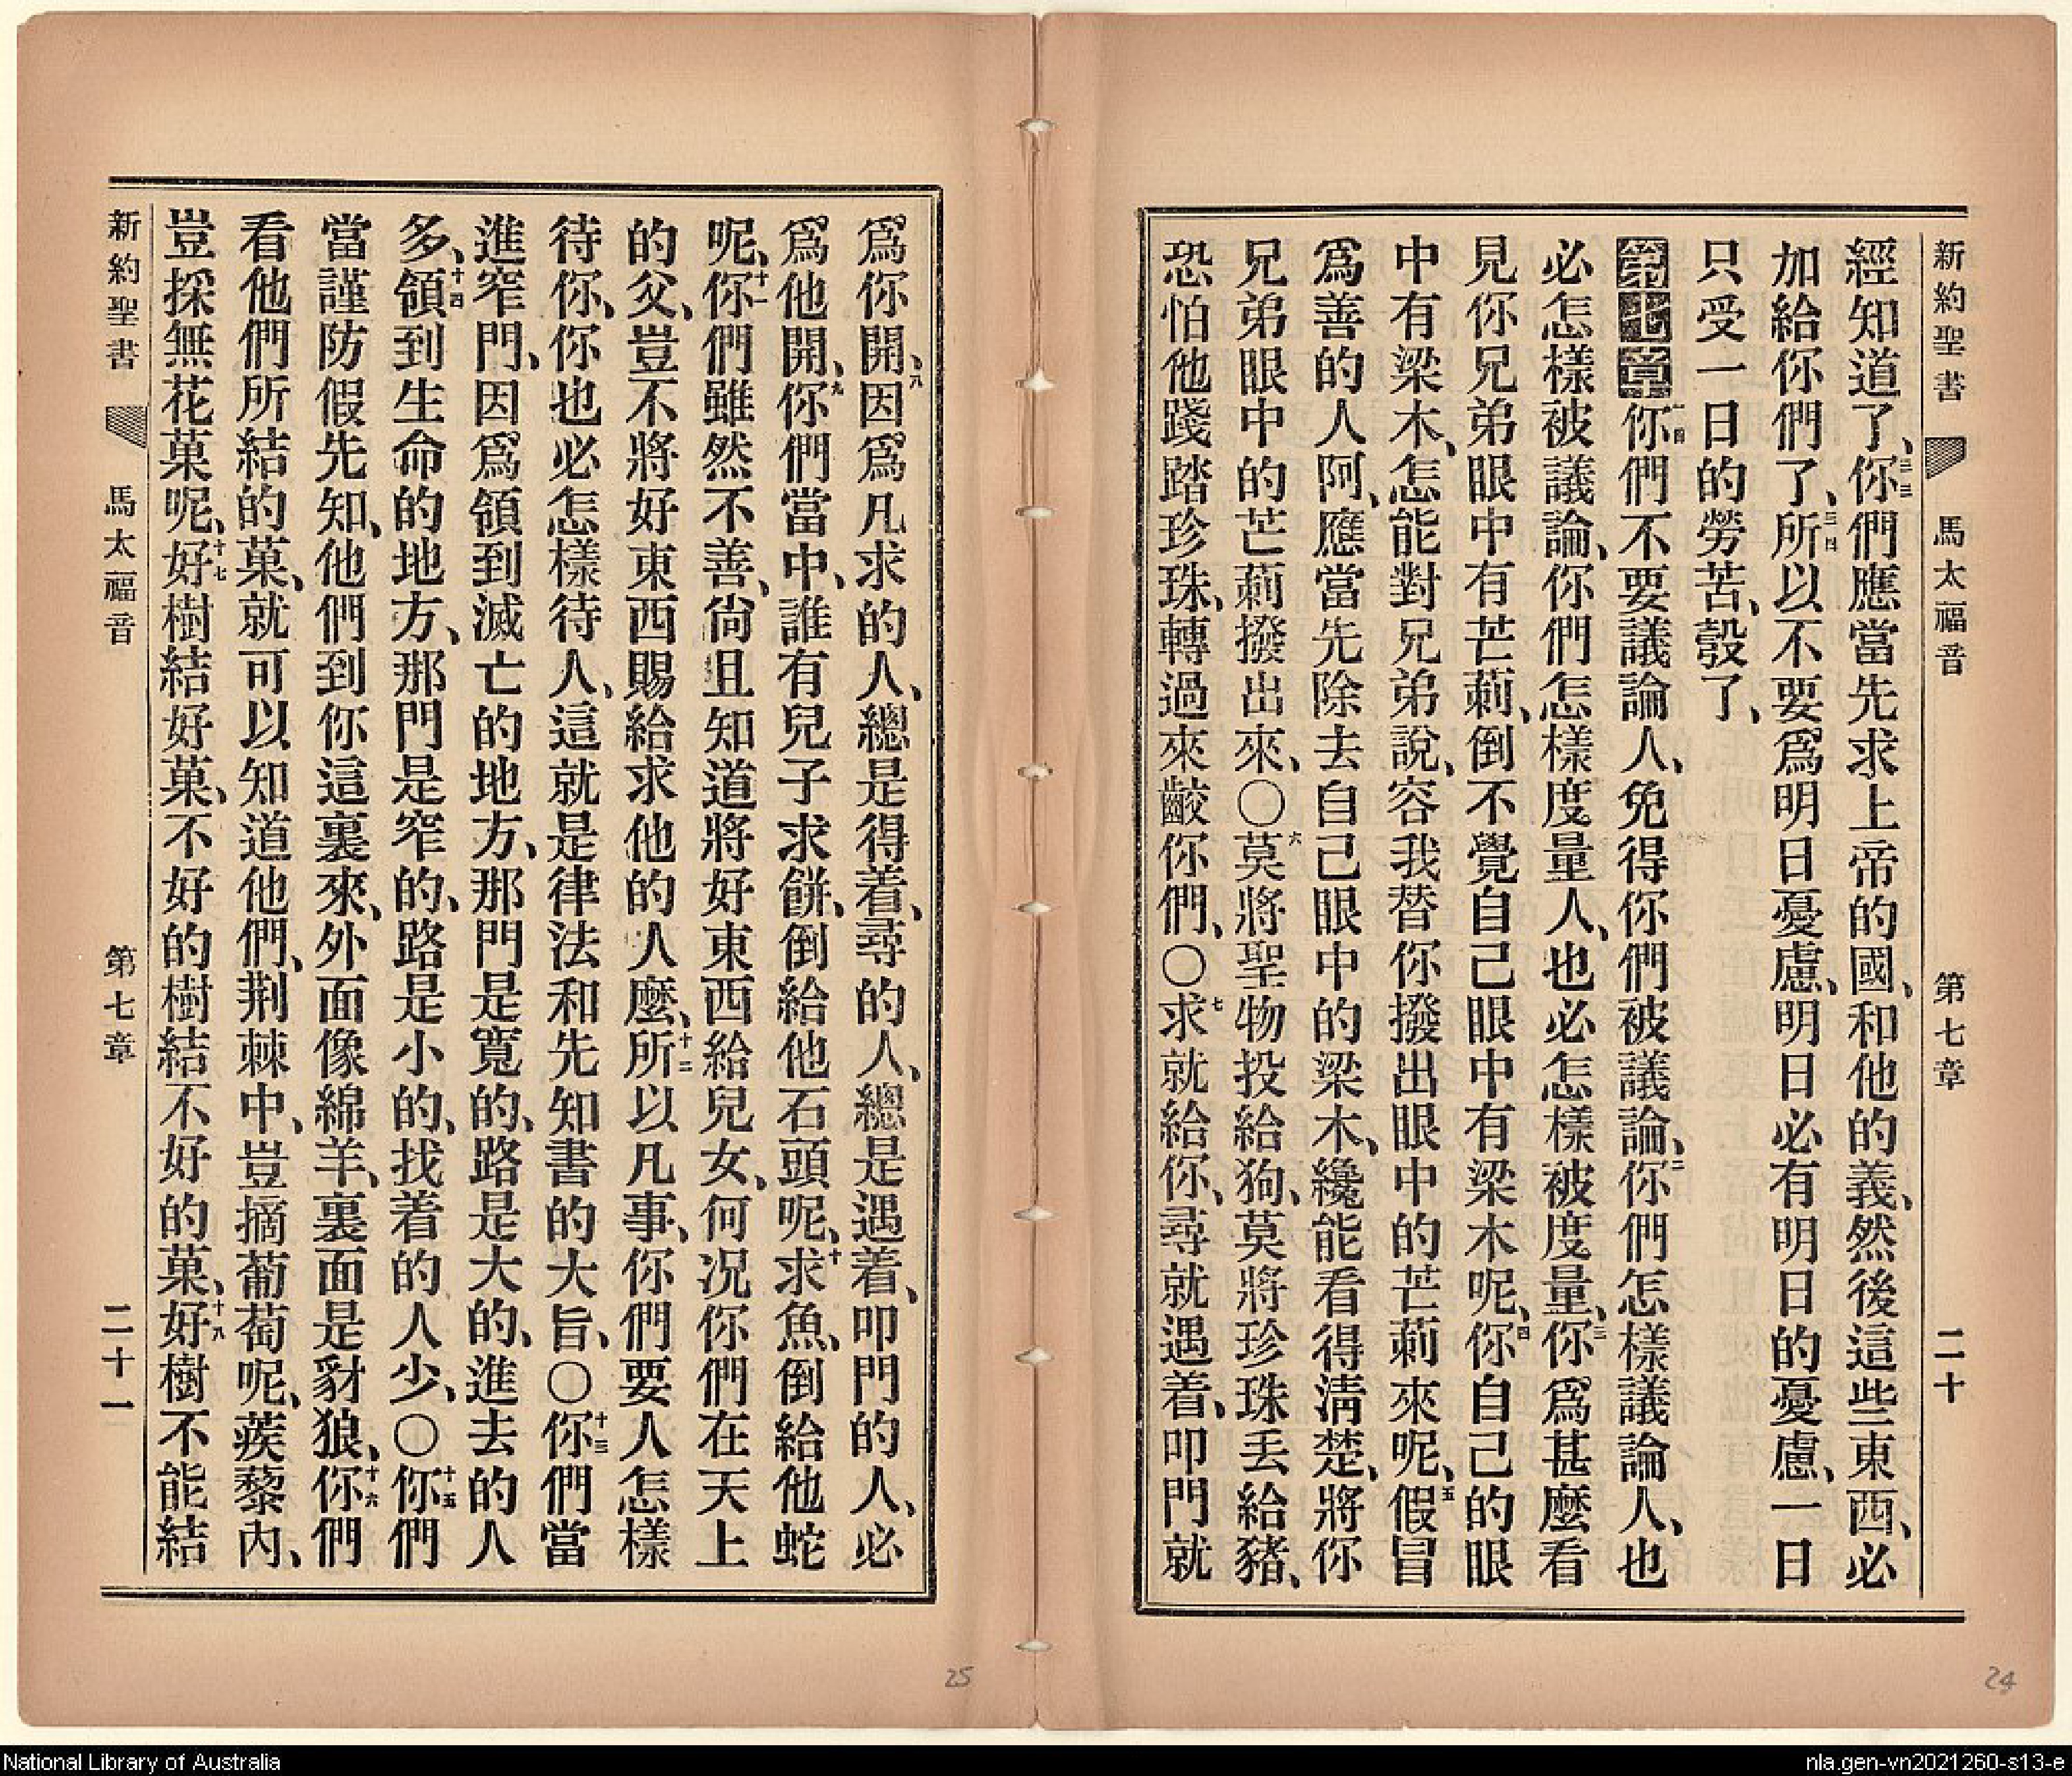 新約聖書 馬太福音 第七章 二十
經知道了、三三你們應當先求上帝的國、和他的義、然後這些東西、必
加給你們了、三四所以不要爲明日憂慮、明日必有明日的憂慮、一日
只受一日的勞苦、彀了、
第七章一四你們不要議論人、免得你們被議論、二你們怎樣議論人、也
必怎樣被議論、你們怎樣度量人、也必怎樣被度量、三你爲甚麼看
見你兄弟眼中有芒莿、倒不覺自己眼中有梁木呢、四你自己的眼
中有梁木、怎能對兄弟說、容我替你撥出眼中的芒莿來呢、五假冒
爲善的人阿、應當先除去自己眼中的梁木、纔能看得淸楚、將你
兄弟眼中的芒莿撥出來、〇六莫將聖物投給狗、莫將珍珠丟給豬、
恐怕他踐踏珍珠、轉過來齩你們、〇七求就給你、尋就遇着、叩門就
新約聖書 馬太福音 第七章 二十一
爲你開、八因爲凡求的人、總是得着、尋的人、總是遇着、叩門的人、必
爲他開、九你們當中、誰有兒子求餠、倒給他石頭呢、十求魚、倒給他蛇
呢、十一你們雖然不善、尙且知道將好東西給兒女、何况你們在天上
的父、豈不將好東西賜給求他的人麼、十二所以凡事、你們要人怎樣
待你、你也必怎樣待人、這就是律法和先知書的大旨、〇十三你們當
進窄門、因爲領到滅亡的地方、那門是寬的、路是大的、進去的人
多、十四領到生命的地方、那門是窄的、路是小的、找着的人少、〇十五你們
當謹防假先知、他們到你這裏來、外面像綿羊、裏面是豺狼、十六你們
看他們所結的菓、就可以知道他們、荆棘中、豈摘葡萄呢、蒺藜內、
豈採無花菓呢、十七好樹結好菓、不好的樹結不好的菓、十八好樹不能結
25
24
National Library of Australia
nla.gen-vn2021260-s13-e